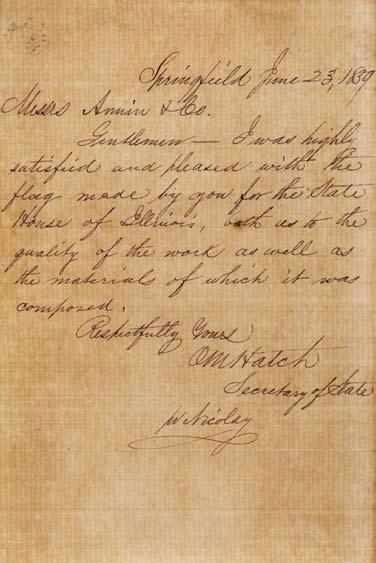 Springfield June 23, 1859
Messrs Annin & Co.
Gentlemen — I was highly
satisfied and pleased with the
flag made by you for the State
House of Illinois, both as to the
quality of the work as well as
the materials of which it was
composed.
Respectfully Yours
O M Hatch
Secretary of State
pr Nicolay